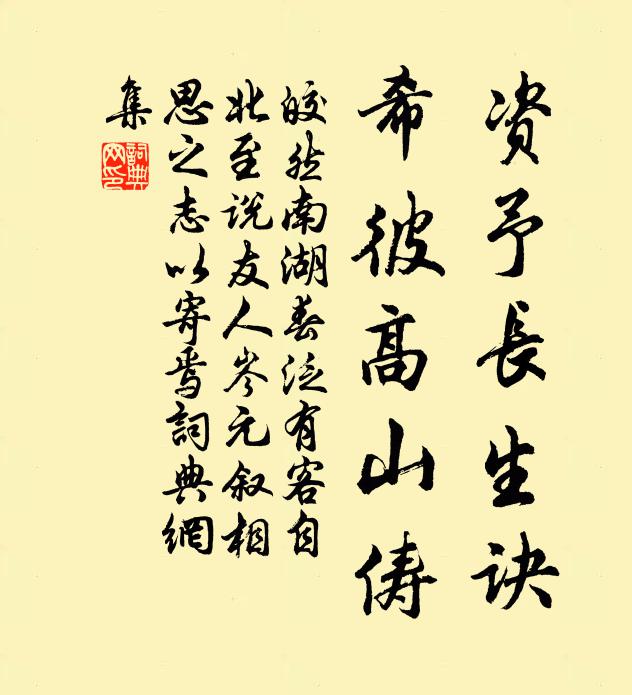 资予長生訣
希彼高山俦
皎然南湖春泛有客自
北至说友人岑元叙相
思之志以寄焉詞典網
集
詞典
网印